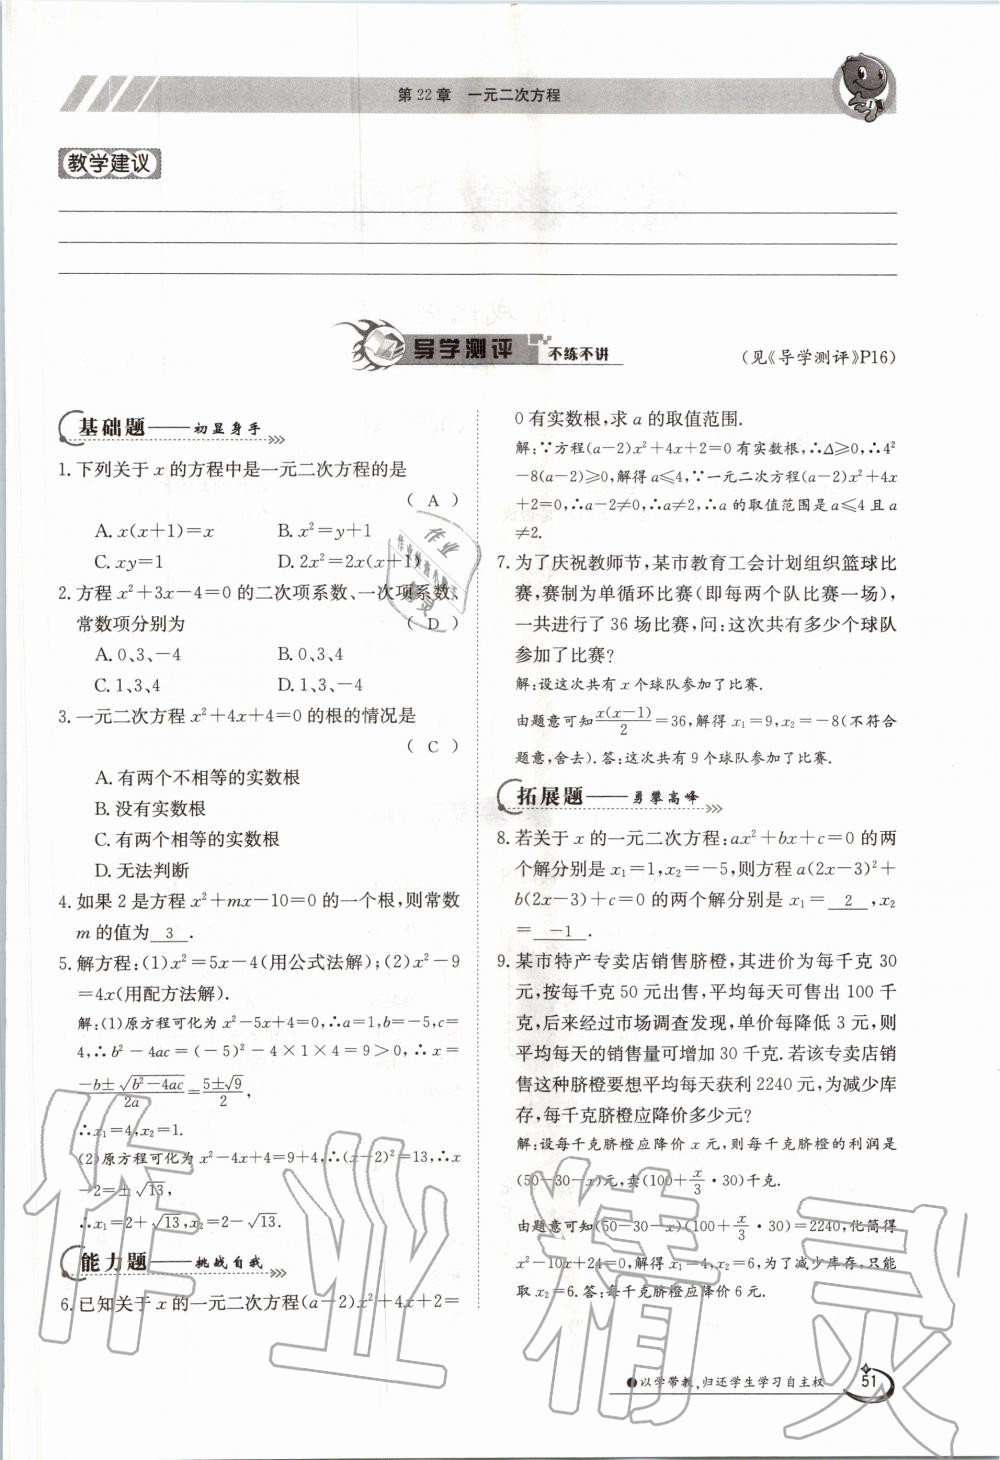 第22章 一元二次方程
教学建议
导学测评 不练不讲
(见《导学测评》P16)
基础题——初显身手
1. 下列关于 x 的方程中是一元二次方程的是
( A )
A. x(x+1)=x B. x²=y+1
C. xy=1 D. 2x²=2x(x+1)
2. 方程 x²+3x-4=0 的二次项系数、一次项系数、
常数项分别为 ( D )
A. 0、3、-4 B. 0、3、4
C. 1、3、4 D. 1、3、-4
3. 一元二次方程 x²+4x+4=0 的根的情况是
( C )
A. 有两个不相等的实数根
B. 没有实数根
C. 有两个相等的实数根
D. 无法判断
4. 如果 2 是方程 x²+mx-10=0 的一个根,则常数
m 的值为 3 .
5. 解方程:(1)x²=5x-4(用公式法解);(2)x²-9
=4x(用配方法解).
解:(1)原方程可化为 x²-5x+4=0,∴a=1,b=-5,c=
4,∴b²-4ac=(-5)²-4×1×4=9>0,∴x=
(-b±√(b²-4ac))/2a=(5±√9)/2,
∴x₁=4,x₂=1.
(2)原方程可化为 x²-4x+4=9+4,∴(x-2)²=13,∴x
-2=±√13,
∴x₁=2+√13,x₂=2-√13.
能力题——挑战自我
6. 已知关于 x 的一元二次方程(a-2)x²+4x+2=
0 有实数根,求 a 的取值范围.
解:∵方程(a-2)x²+4x+2=0 有实数根,∴Δ≥0,∴4²
-8(a-2)≥0,解得 a≤4,∵一元二次方程(a-2)x²+4x
+2=0,∴a-2≠0,∴a≠2,∴a 的取值范围是 a≤4 且 a
≠2.
7. 为了庆祝教师节,某市教育工会计划组织篮球比
赛,赛制为单循环比赛(即每两个队比赛一场),
一共进行了 36 场比赛,问:这次共有多少个球队
参加了比赛?
解:设这次共有 x 个球队参加了比赛.
由题意可知 x(x-1)/2=36,解得 x₁=9,x₂=-8(不符合
题意,舍去).答:这次共有 9 个球队参加了比赛.
拓展题——勇攀高峰
8. 若关于 x 的一元二次方程:ax²+bx+c=0 的两
个解分别是 x₁=1,x₂=-5,则方程 a(2x-3)²+
b(2x-3)+c=0 的两个解分别是 x₁= 2 ,x₂
= -1 .
9. 某市特产专卖店销售脐橙,其进价为每千克 30
元,按每千克 50 元出售,平均每天可售出 100 千
克,后来经过市场调查发现,单价每降低 3 元,则
平均每天的销售量可增加 30 千克.若该专卖店销
售这种脐橙要想平均每天获利 2240 元,为减少库
存,每千克脐橙应降价多少元?
解:设每千克脐橙应降价 x 元,则每千克脐橙的利润是
(50-30-x)元,卖(100+x/3·30)千克.
由题意可知(50-30-x)(100+x/3·30)=2240,化简得
x²-10x+24=0,解得 x₁=4,x₂=6,为了减少库存,只能
取 x₂=6.答:每千克脐橙应降价 6 元.
以学带教,归还学生学习自主权
51
作业精灵